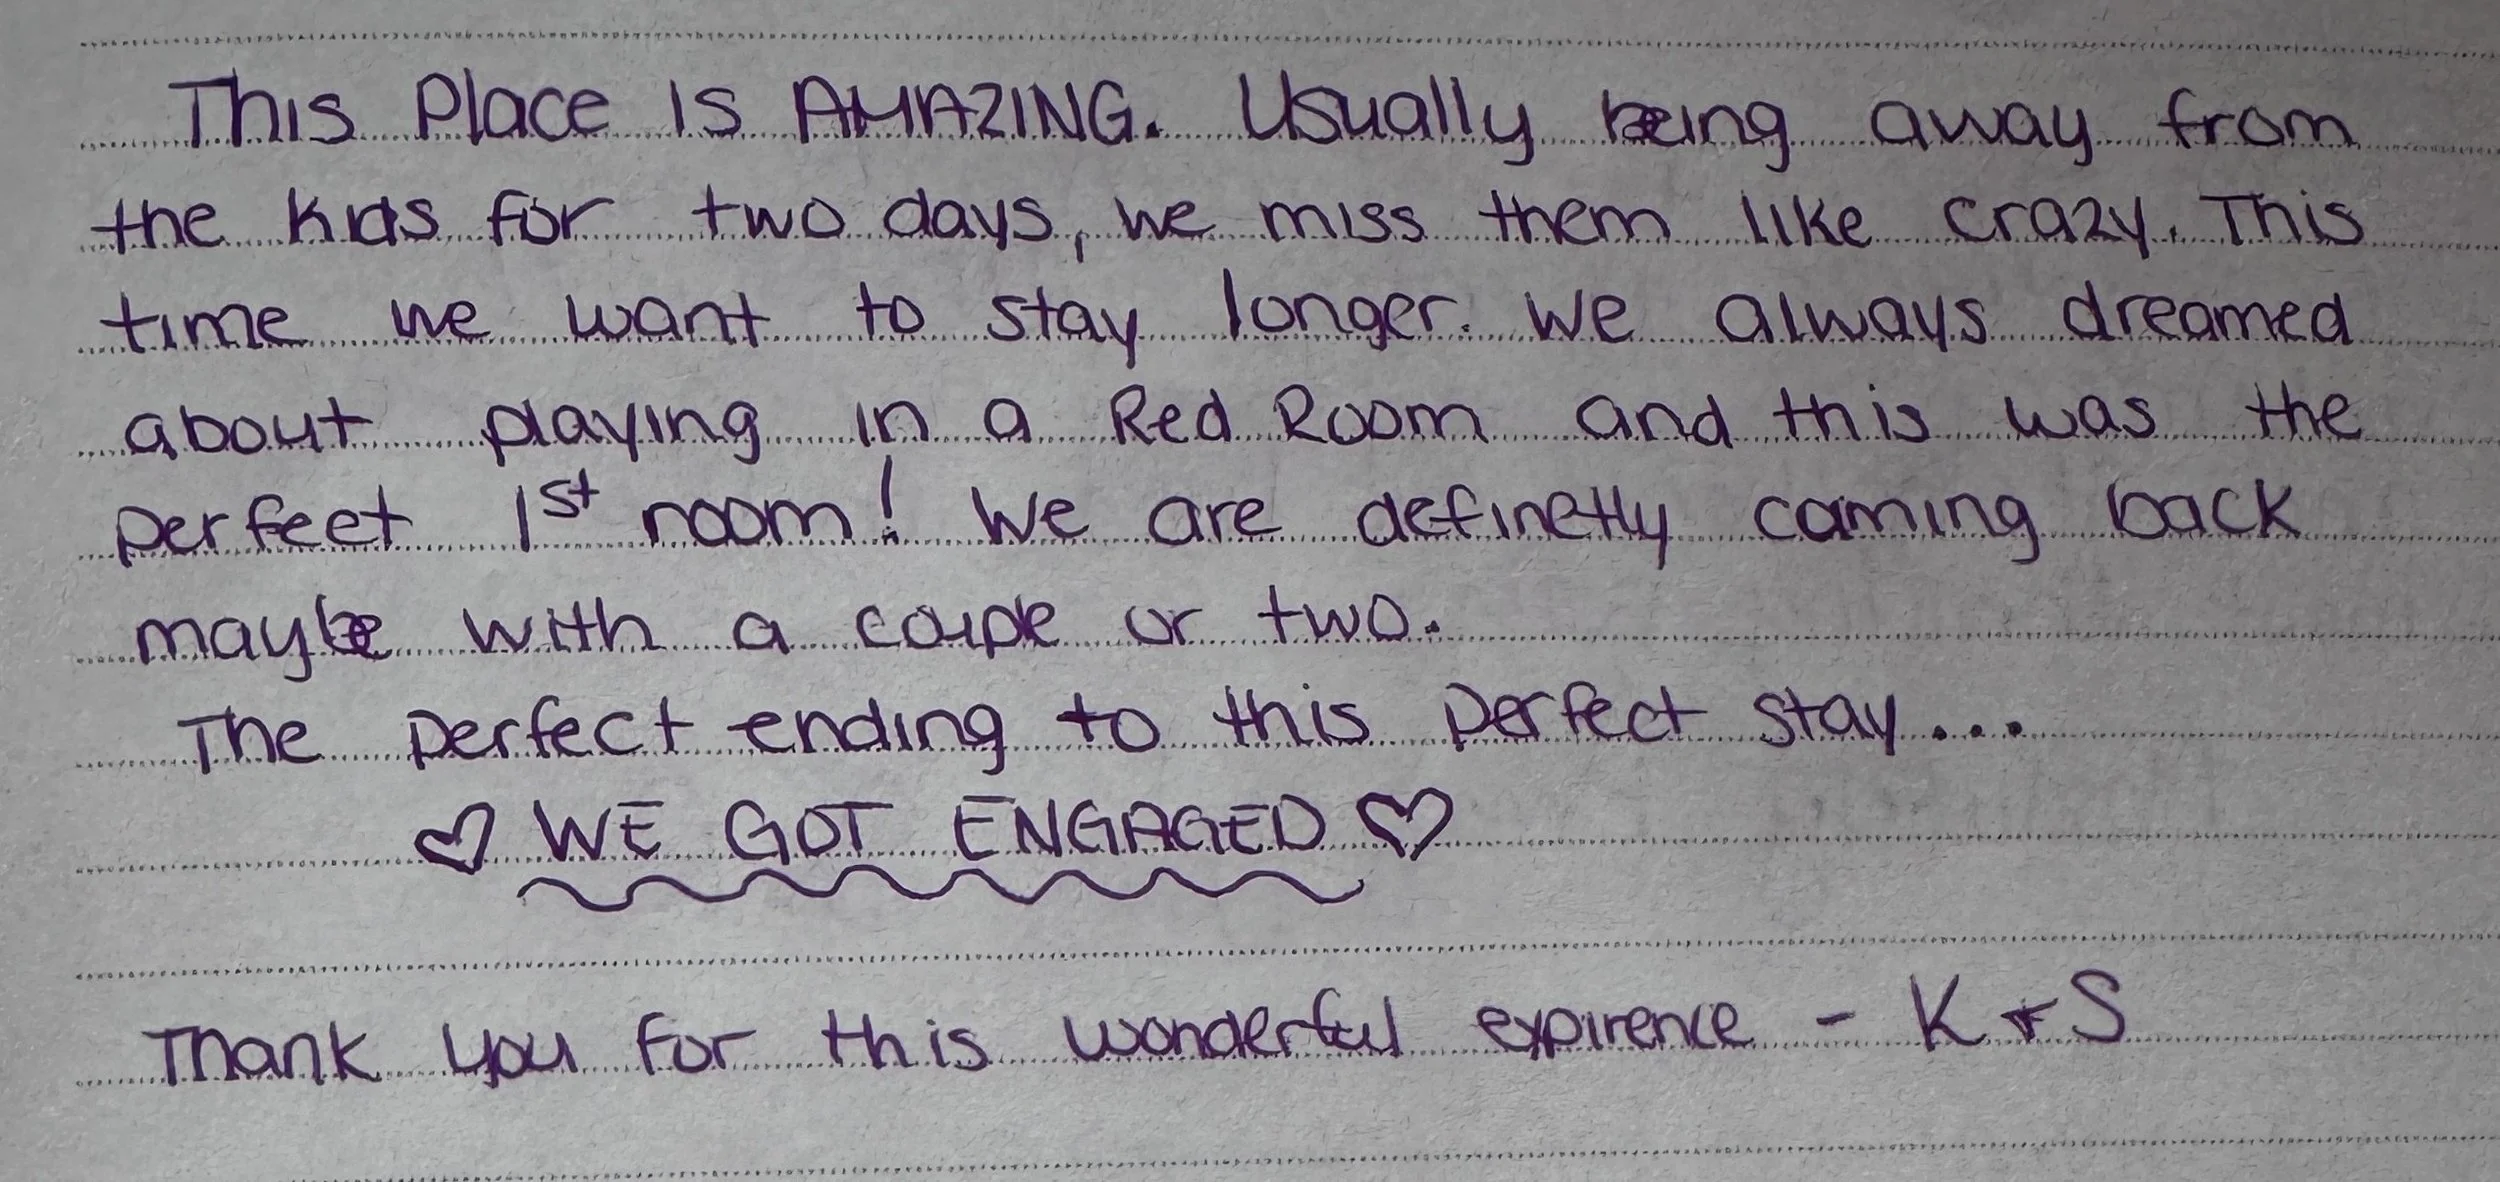 This Place is AMAZING. Usually being away from
the kids for two days, we miss them like crazy. This
time we want to stay longer. We always dreamed
about playing in a Red Room and this was the
perfect 1st room! We are definetly coming back
maybe with a couple or two.
The perfect ending to this perfect stay...
♡ WE GOT ENGAGED ♡
Thank you for this wonderful expirence - K + S